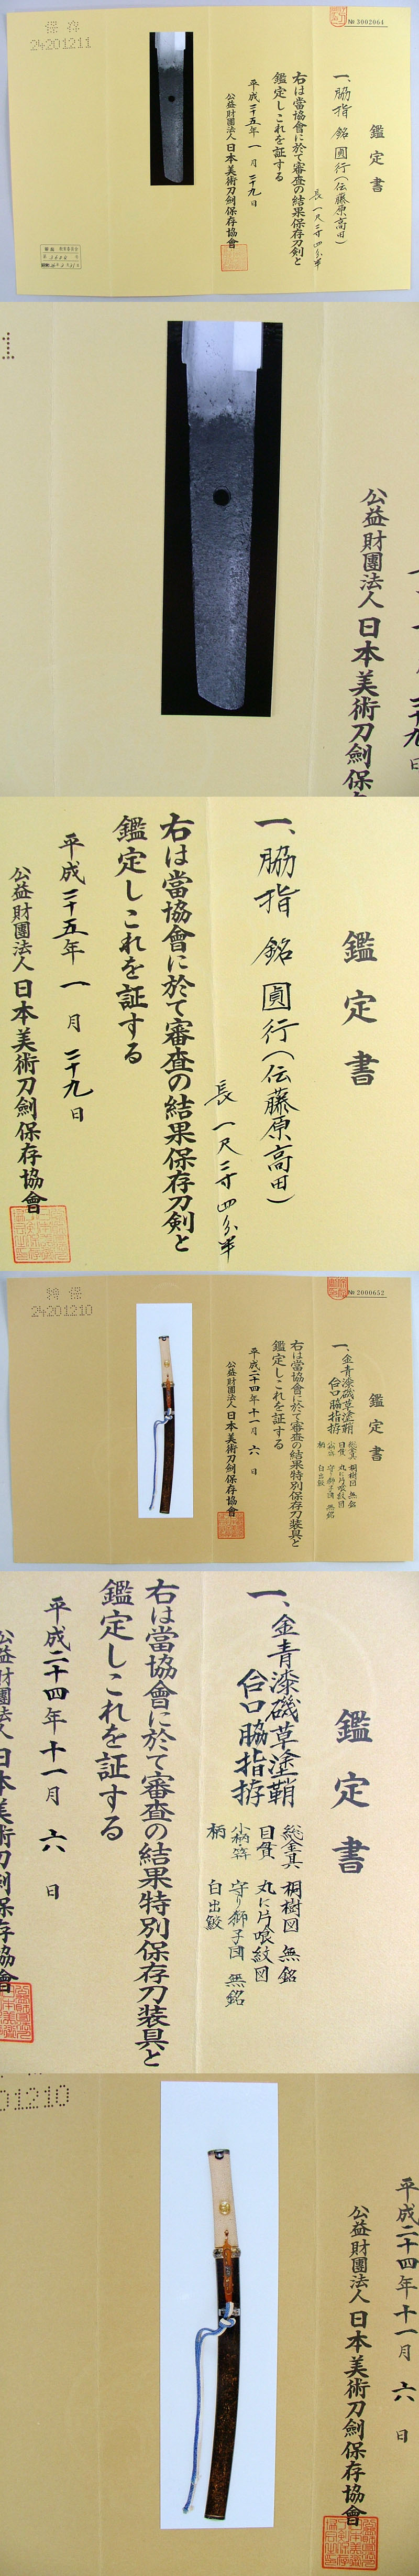 № 3002064
鑑定書
一、脇指 銘 圓行(伝藤原高田)
長 一尺二寸四分半
右は當協會に於て審査の結果保存刀剣と
鑑定しこれを証する
平成二十五年 一 月 二十九 日
公益財團法人 日本美術刀劍保存協會
保存
24201211
1
二十九日
公益財團法人 日本美術刀劍保存
鑑定書
一、脇指 銘 圓行(伝藤原高田)
長 一尺二寸四分半
右は當協會に於て審査の結果保存刀剣と
鑑定しこれを証する
平成二十五年 一 月 二十九 日
公益財團法人 日本美術刀劍保存協會
№ 2000652
鑑定書
一、金青漆磯草塗鞘
合口脇指拵
総金具 桐樹図 無銘
目貫 丸に片喰紋図
小柄・笄 守り獅子図 無銘
柄 白出鮫
右は當協會に於て審査の結果特別保存刀装具と
鑑定しこれを証する
平成二十四年 十一月 六 日
公益財團法人 日本美術刀劍保存協會
特保
24201210
鑑定書
一、金青漆磯草塗鞘
合口脇指拵
総金具 桐樹図 無銘
目貫 丸に片喰紋図
小柄・笄 守り獅子図 無銘
柄 白出鮫
右は當協會に於て審査の結果特別保存刀装具と
鑑定しこれを証する
平成二十四年 十一月 六 日
公益財團法人 日本美術刀劍保存協會
01210
平成二十四年 十一月 六 日
公益財團法人 日本美術刀劍保存協會